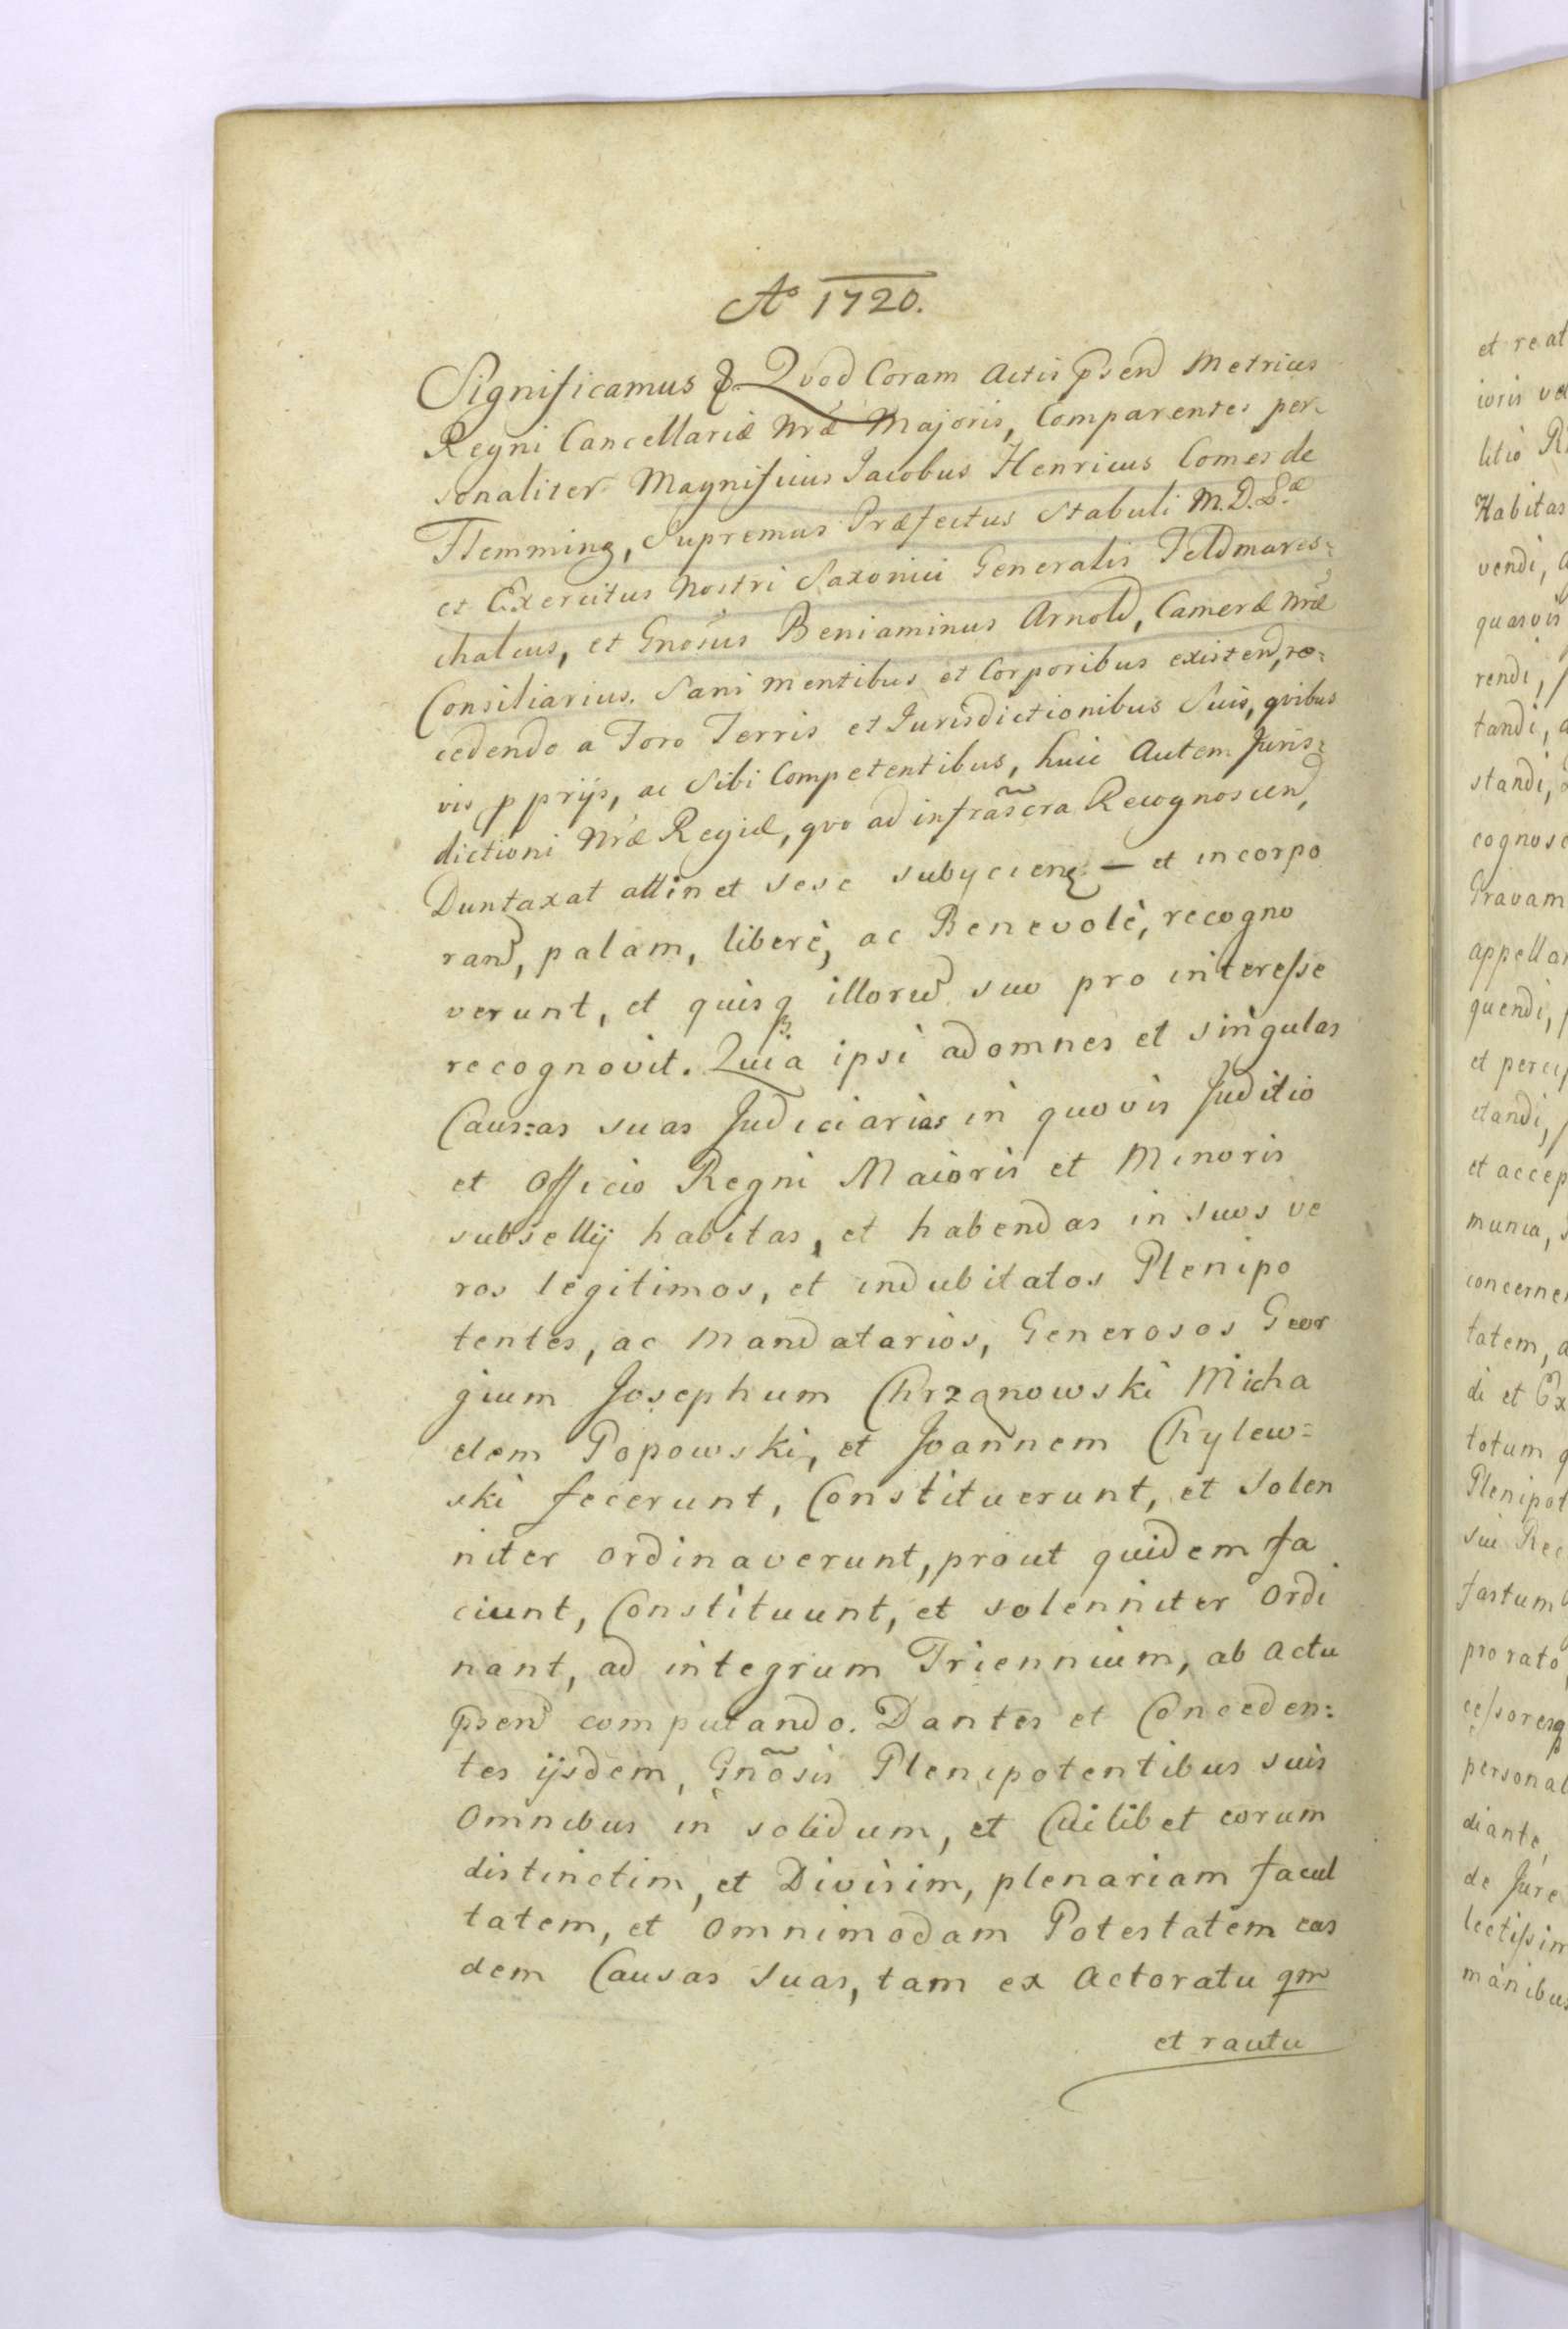 Ao 1720.
Significamus & Quod Coram Actis Psend Metrices
Regni Cancellariæ Nræ Majoris, Comparentes per-
sonaliter Magnificus Jacobus Henricus Comes de
Flemming, Supremus Præfectus Stabuli M.D.L.æ
et Exercitus Nostri Saxonici Generalis Feldmares:
chalcus, et Gnosus Beniaminus Arnold, Cameræ Nræ
Consiliarius. Sani mentibus et Corporibus existend, re:
cedendo a Foro Terris et Jurisdictionibus Suis, qvibus
vis pprijs, ac Sibi Competentibus, huic Autem Juris:
dictioni Nræ Regiæ, qvo ad infrascra Recognoscend,
Duntaxat attinet sese subycienq - et incorpo
rand, palam, liberè, ac Benevolè, recogno
verunt, et quisq illorud suo pro interesse
recognovit. Quia ipsi ad omnes et singulas
Caus:as suas Judiciarias in quovis Juditio
et Officio Regni Maioris et Minoris
subsellij habitas, et habendas in suos ve
ros legitimos, et indubitatos Plenipo
tentes, ac Mandatarios, Generosos Geor
gium Josephum Chrząnowski Micha
elem Popowski, et Joannem Chylew=
ski fecerunt, Constituerunt, et Solen
niter ordinaverunt, prout quidem fa
ciunt, Constituunt, et solenniter Ordi
nant, ad integrum Triennium, ab Actu
Psend computando. Dantes et Conceden:
tes ijsdem, Gnosis Plenipotentibus suis
Omnibus in solidum, et Cuilibet eorum
distinctim, et Divisim, plenariam facul
tatem, et Omnimodam Potestatem eas
dem Causas Suas, tam ex Actoratu qm
et rautu
et reat
ioris ve
litio R
Habitas
vendi,
quasvis
rendi,
tandi, a
standi,
cognosc
Gravam
appellar
quendi,
et perci
ctandi,
et accep
munia,
concerne
tatem, a
di et Ex
totum q
Plenipot
sui Rec
fastum
pro rato
cessoresq
personal
diante,
de Jure
lectissim
manibus